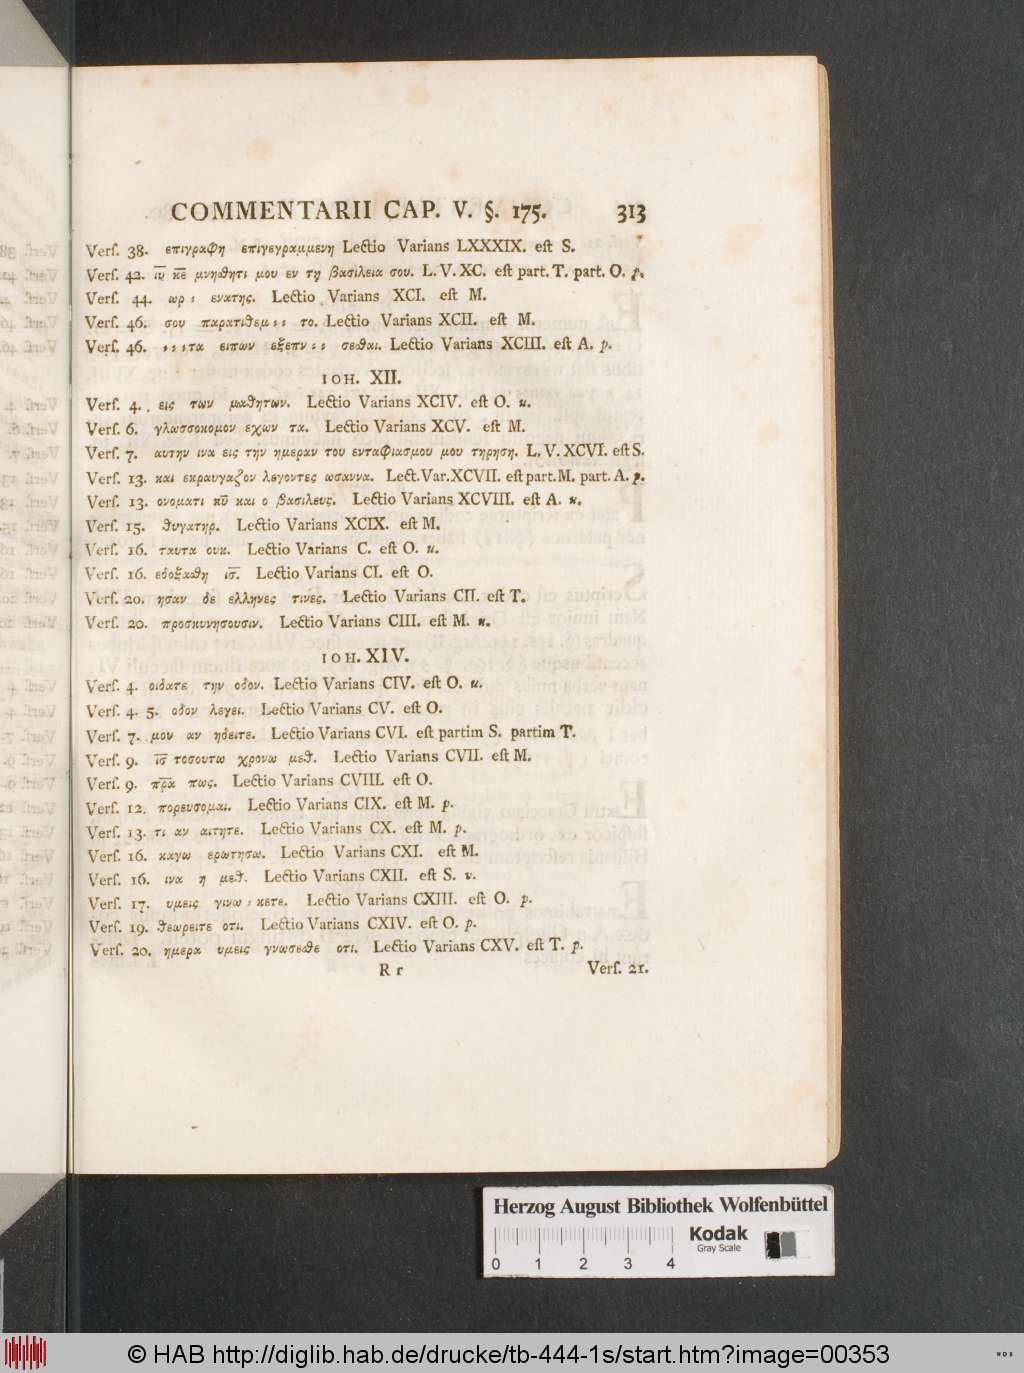 COMMENTARII CAP. V. §. 175. 313
Verſ. 38. επιγραφη επιγεγραμμενη Lectio Varians LXXXIX. eſt S.
Verſ. 42. ιυ̅ κε̅ μνηϑητι μου εν τῃ βασιλεια σου. L. V. XC. eſt part. T. part. O. p.
Verſ. 44. ωρ : ενατης. Lectio Varians XCI. eſt M.
Verſ. 46. σου παρατιϑεμ : : το. Lectio Varians XCII. eſt M.
Verſ. 46. : : : τα ειπων εξεπν : : σεϑαι. Lectio Varians XCIII. eſt A. p.
IOH. XII.
Verſ. 4. εις των μαϑητων. Lectio Varians XCIV. eſt O. u.
Verſ. 6. γλωσσοκομον εχων τα. Lectio Varians XCV. eſt M.
Verſ. 7. αυτην ινα εις την ημεραν του ενταφιασμου μου τηρηση. L. V. XCVI. eſt S.
Verſ. 13. και εκραυγαζον λεγοντες ωσαννα. Lect. Var. XCVII. eſt part. M. part. A. p.
Verſ. 13. ονοματι κυ̅ και ο βασιλευς. Lectio Varians XCVIII. eſt A. u.
Verſ. 15. ϑυγατηρ. Lectio Varians XCIX. eſt M.
Verſ. 16. ταυτα ουκ. Lectio Varians C. eſt O. u.
Verſ. 16. εδοξαϑη ις̅. Lectio Varians CI. eſt O.
Verſ. 20. ησαν δε ελληνες τινες. Lectio Varians CII. eſt T.
Verſ. 20. προσκυνησουσιν. Lectio Varians CIII. eſt M. u.
IOH. XIV.
Verſ. 4. οιδατε την οδον. Lectio Varians CIV. eſt O. u.
Verſ. 4. 5. οδον λεγει. Lectio Varians CV. eſt O.
Verſ. 7. μου αν ηδειτε. Lectio Varians CVI. eſt partim S. partim T.
Verſ. 9. ις̅ τοσουτω χρονω μεϑ. Lectio Varians CVII. eſt M.
Verſ. 9. πρ̅α πως. Lectio Varians CVIII. eſt O.
Verſ. 12. πορευσομαι. Lectio Varians CIX. eſt M. p.
Verſ. 13. τι αν αιτητε. Lectio Varians CX. eſt M. p.
Verſ. 16. καγω ερωτησω. Lectio Varians CXI. eſt M.
Verſ. 16. ινα η μεϑ. Lectio Varians CXII. eſt S. v.
Verſ. 17. υμεις γινω : κετε. Lectio Varians CXIII. eſt O. p.
Verſ. 19. ϑεωρειτε οτι. Lectio Varians CXIV. eſt O. p.
Verſ. 20. ημερα υμεις γνωσεϑε οτι. Lectio Varians CXV. eſt T. p.
R r Verſ. 21.
Herzog August Bibliothek Wolfenbüttel
0 1 2 3 4
Kodak
Gray Scale
© HAB http://diglib.hab.de/drucke/tb-444-1s/start.htm?image=00353